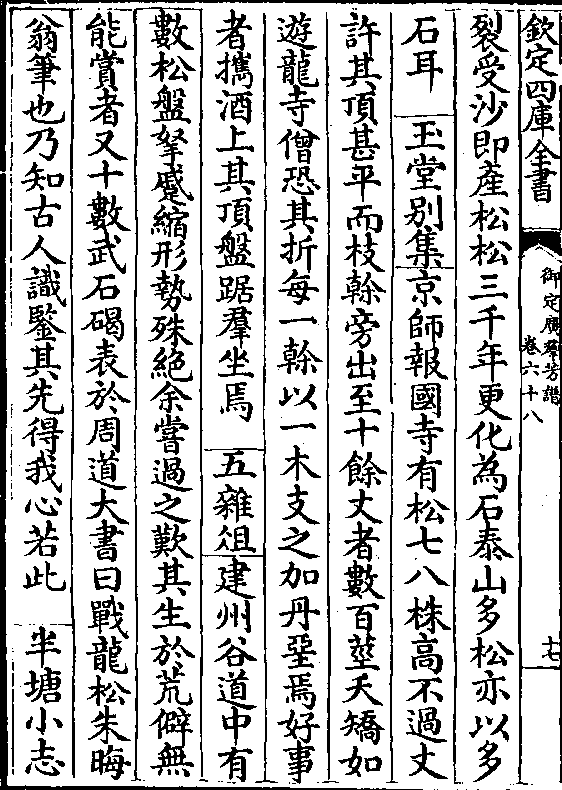 欽定四庫全書
御定廣羣芳譜
卷六十八
十七
裂受沙即產松松三千年更化為石泰山多松亦以多
石耳 玉堂別集京師報國寺有松七八株高不過丈
許其頂甚平而枝榦旁出至十餘丈者數百莖夭矯如
遊龍寺僧恐其折每一榦以一木支之加丹堊焉好事
者攜酒上其頂盤踞羣坐焉 五雜俎建州谷道中有
數松盤拏蹙縮形勢殊絕余嘗過之歎其生於荒僻無
能賞者又十數武石碣表於周道大書曰戰龍松朱晦
翁筆也乃知古人識鑒其先得我心若此 半塘小志